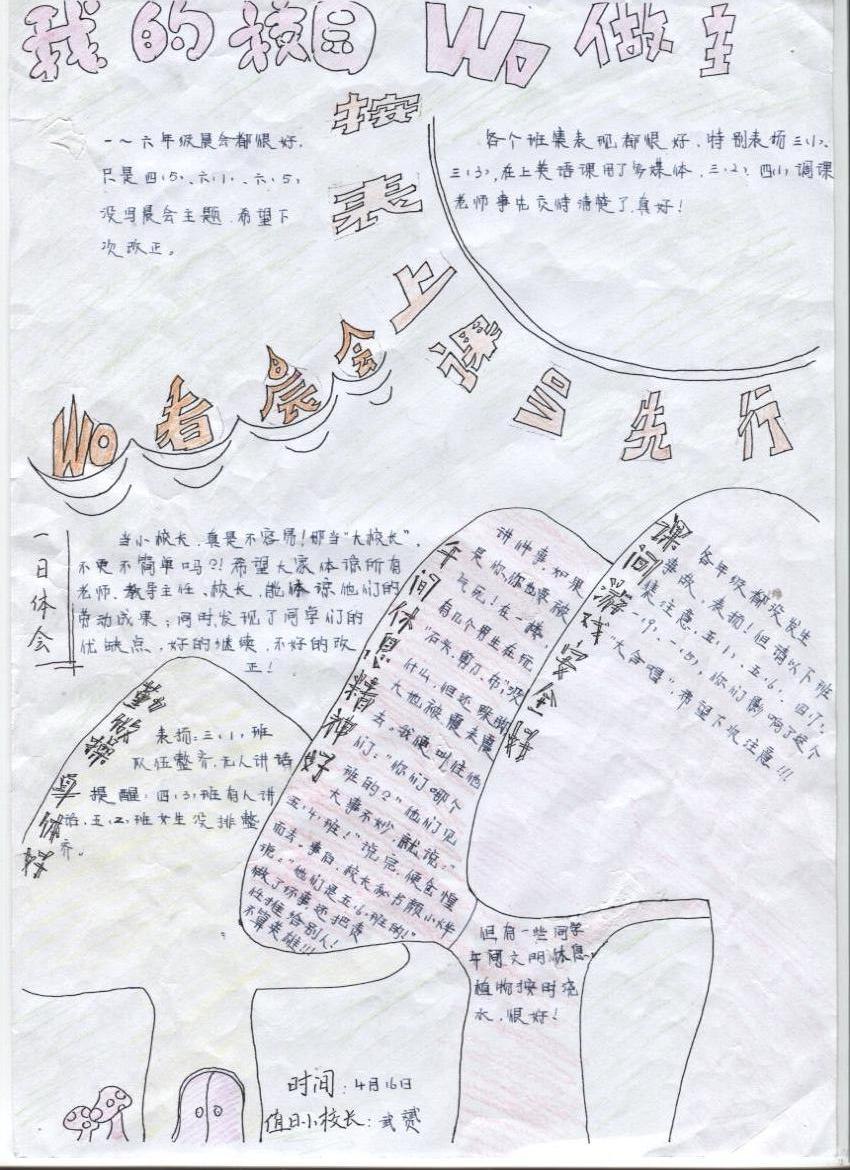 我的校园Wo做主
一～六年级晨会都很好，
只是四（5）、六（1）、六（5），
没写晨会主题，希望下
次改正。
Wo看晨会
各个班集表现都很好，特别表扬三（1）、
三（3），在上英语课用了多媒体，三（2）、四（1）调课
老师事先交待清楚了，真好！
按表上课Wo先行
一日体会
当小校长，真是不容易！那当“大校长”，
不更不简单吗？！希望大家体谅所有
老师、教导主任、校长，能体谅他们的
劳动成果；同时发现了同学们的
优缺点，好的继续，不好的改
正！
勤做操身体好
表扬：三（1）班
队伍整齐，无人讲话
提醒：四（3）班有人讲
话，五（2）班女生没排整
齐。
午间休息精神好
讲件事，如果
是你，你也要被
气死！在一楼
有几个男生在玩
“石头、剪刀、布”，没
什么，但还跺脚
大地被震来震
去。我便叫住他
们：“你们哪个
班的？”他们见
大事不妙，就说：“
五（4）班！”说完，便仓惶
而去。事后，校长秘书颜小烨
说：“他们是五（6）班的！”
做了坏事，还把责
任推给别人！
不算英雄！！！
但有一些同学
午间文明休息，
植物按时浇
水，很好！
课间游戏安全
各年级都没发生
事故，表扬！但请以下班
集注意：五（1）、五（6）、四（7）、
你们影响了这个
“大合唱”，希望下次注意！！！
时间：4月16日
值日小校长：武赟